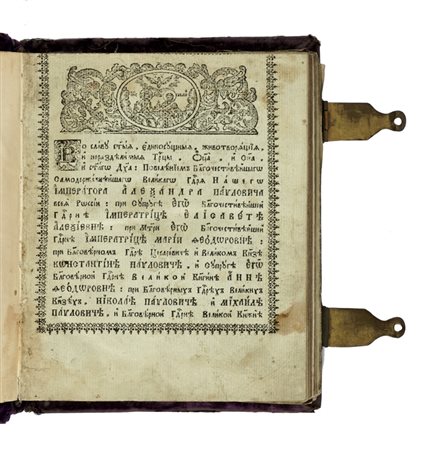 Во славу ст҃ыѧ, єдиносꙋщныѧ, животворѧщїѧ,
и нераздѣлимыѧ Трⷪ҇цы, Ѻц҃а, и Сн҃а,
и ст҃агѡ Дх҃а: Повелѣнїемъ Бл҃гочестивѣйшагѡ
Самодержавнѣйшагѡ Великагѡ Гдⷭ҇рѧ Нашегѡ
ІМПЕРАТОРА АЛЕѮАНДРА ПАѴЛОВИЧА
всеѧ Рѡссїи: при Сꙋпрꙋгѣ ЕГѠ Бл҃гочестивѣйшей
ГДⷭ҇РНѢ ІМПЕРАТРИЦѢ ЕЛІСАВЕТѢ
АЛЕѮІЕВНѢ: при Мт҃ри ЕГѠ Бл҃гочестивѣйшей
Гдⷭ҇рнѣ ІМПЕРАТРИЦѢ МАРІИ ѲЕѠДѠРОВНѢ:
при Бл҃говѣрномъ Гдⷭ҇рѣ Цесаревичѣ и Великомъ Кн҃зѣ
КѠНСТАНТІНѢ ПАѴЛОВИЧѢ, и Сꙋпрꙋгѣ ЕГѠ
Бл҃говѣрной Гдⷭ҇рнѣ ВЕЛИКОЙ КНѦГИНѢ АННѢ
ѲЕѠДѠРОВНѢ: при Бл҃говѣрныхъ Гдⷭ҇рѣхъ Великихъ
Кнѧзѣхъ, НІКОЛАѢ ПАѴЛОВИЧѢ и МІХАИЛѢ
ПАѴЛОВИЧѢ, и Бл҃говѣрной Гдⷭ҇рнѣ Великой Кнѧжнѣ